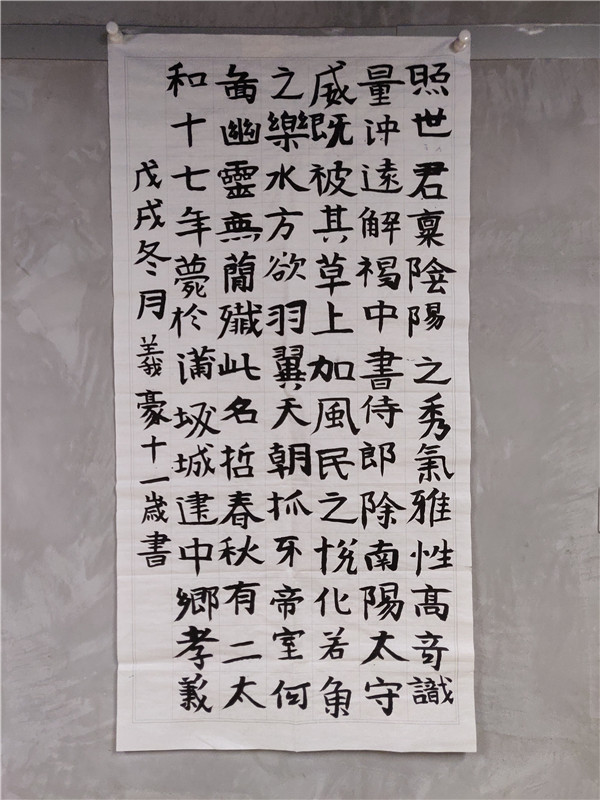 照世君稟陰陽之秀氣雅性高奇識
量沖遠解褐中書侍郎除南陽太守
威既被其草上加風民之悅化若魚
之樂水方欲羽翼天朝抓牙帝室何
啚幽靈無蕳殲此名哲春秋有二太
和十七年薨於蒲坂城建中鄉孝義
戊戌冬月義豪十一歲書